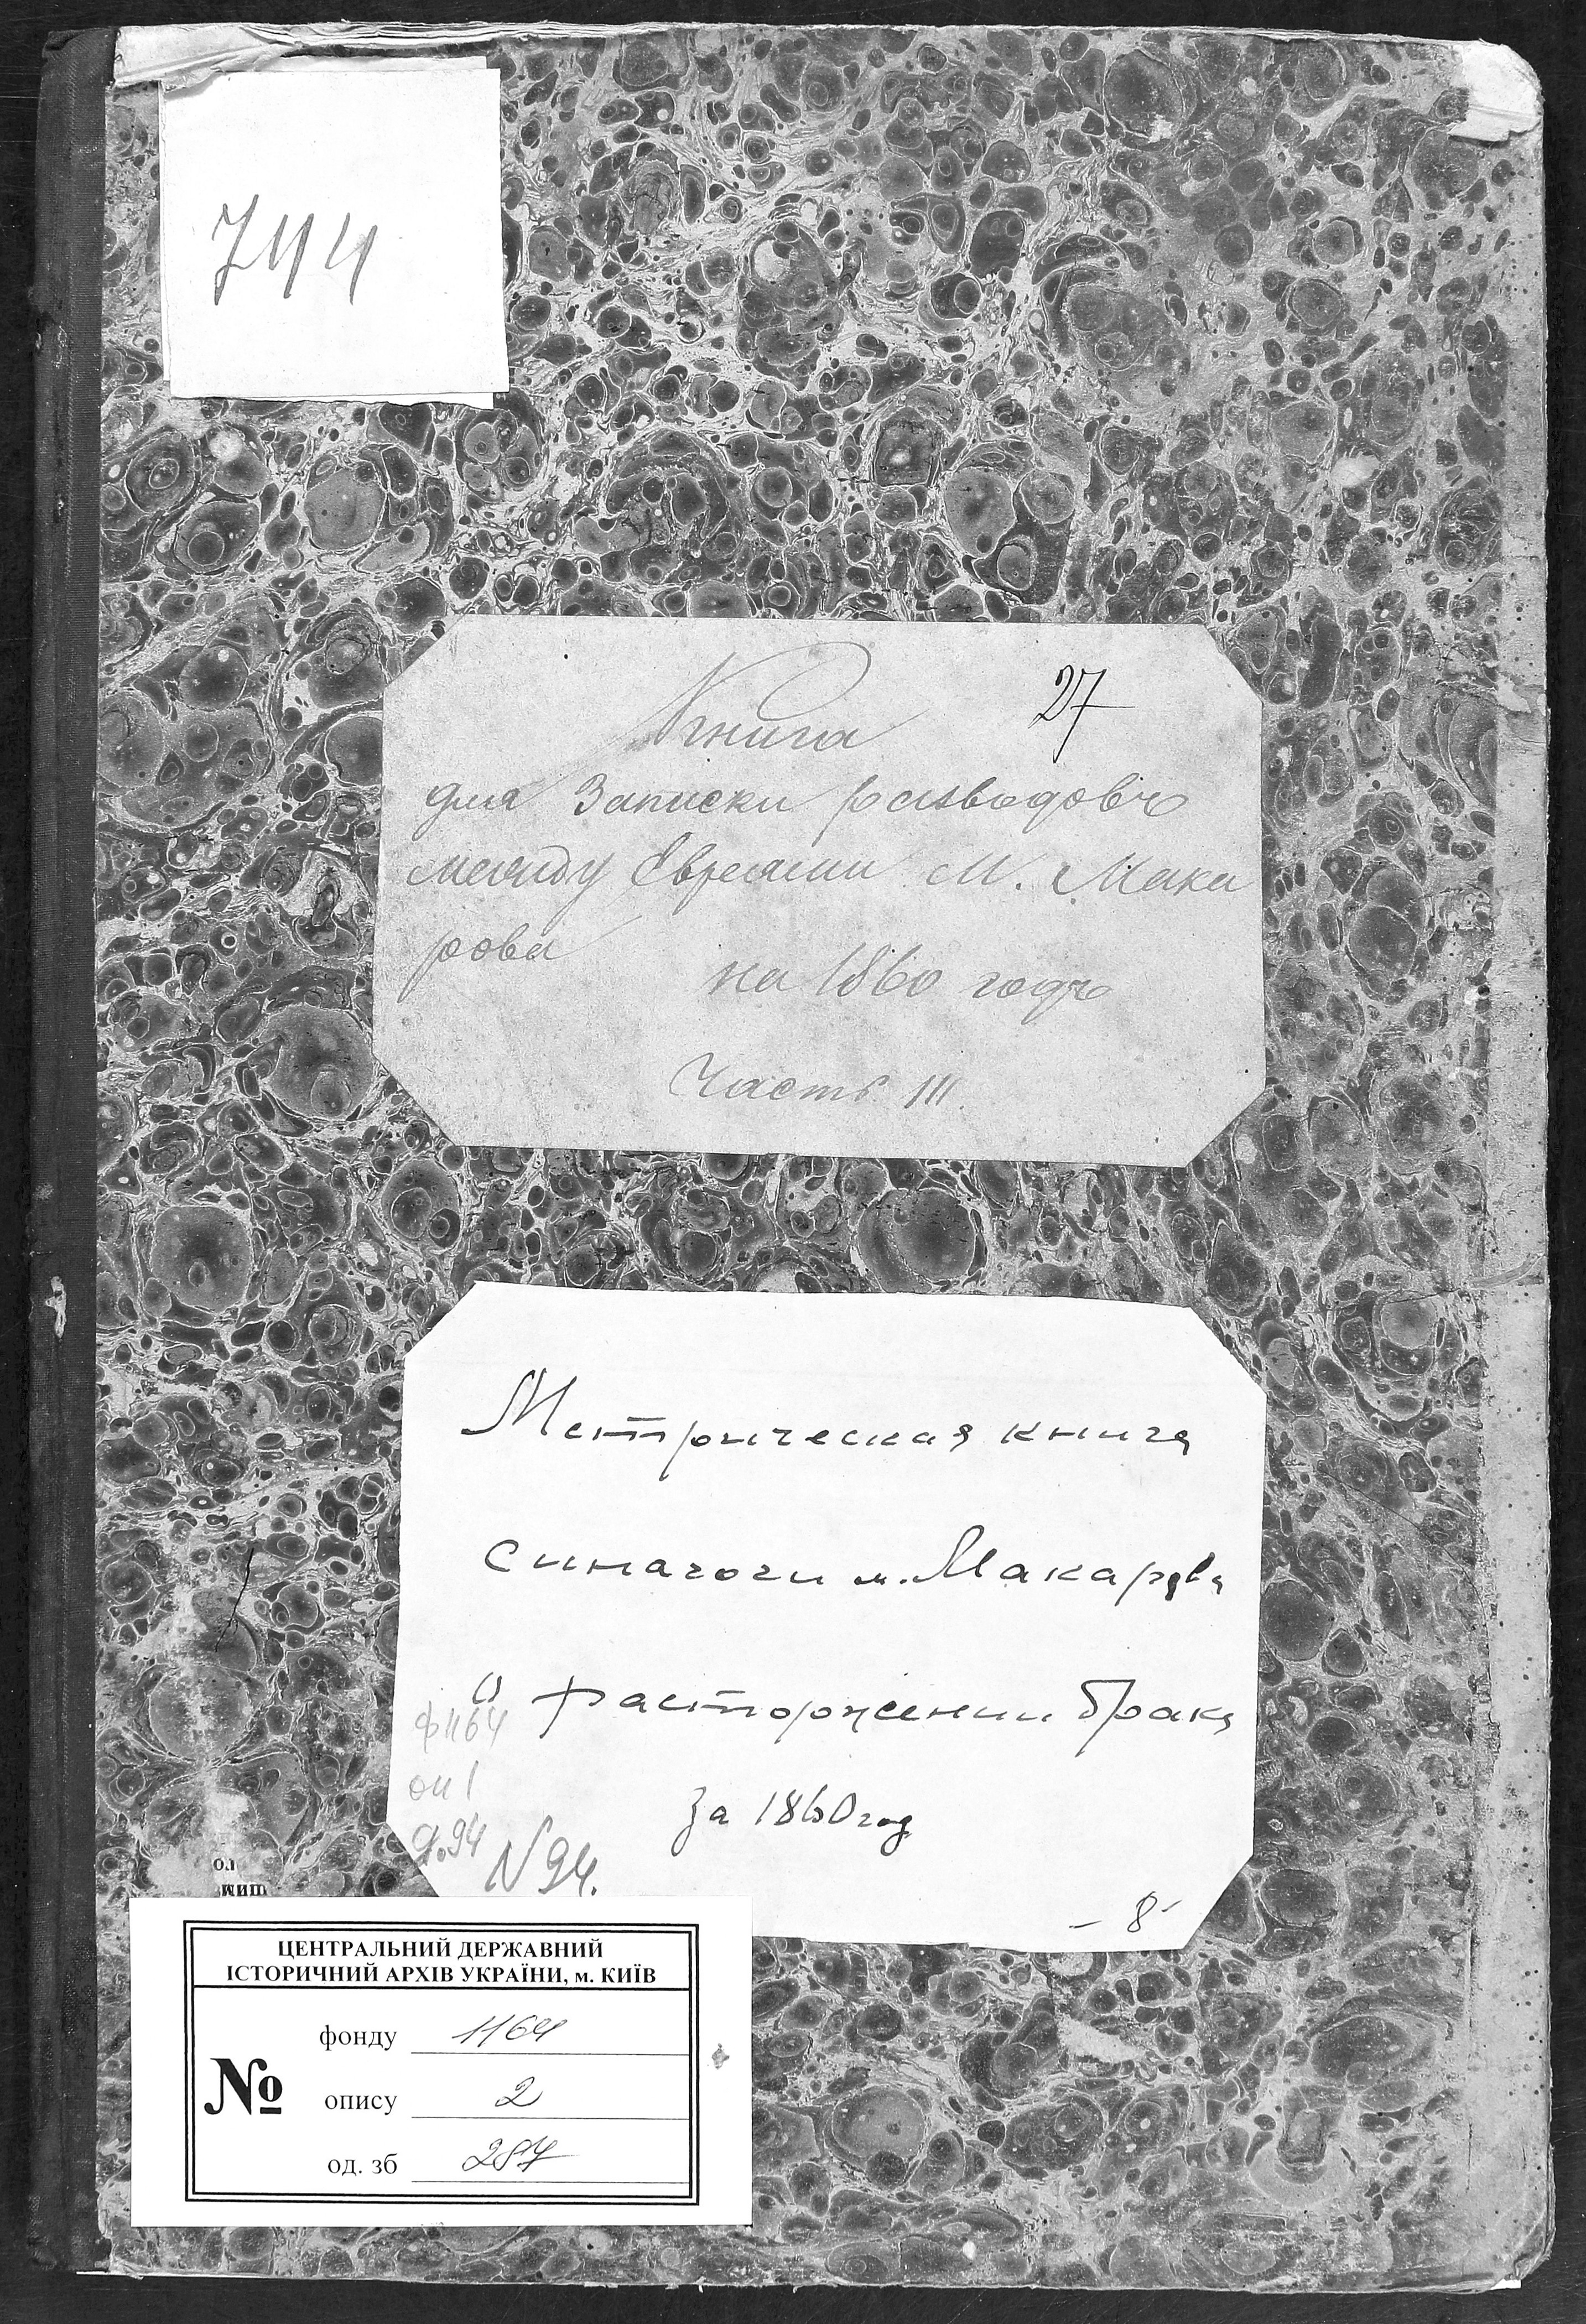 744
27
Книга
для Записки разводовъ
между Евреями М. Мака
рова
на 1860 годъ
Часть III.
Метрическая книга
синагоги м. Макарова
о расторжении брака
за 1860 год
ф 1164
оп 1
д. 94
N 94.
- 8 -
ЦЕНТРАЛЬНИЙ ДЕРЖАВНИЙ
ІСТОРИЧНИЙ АРХІВ УКРАЇНИ, м. КИЇВ
фонду 1164
№ опису 2
од. зб 287